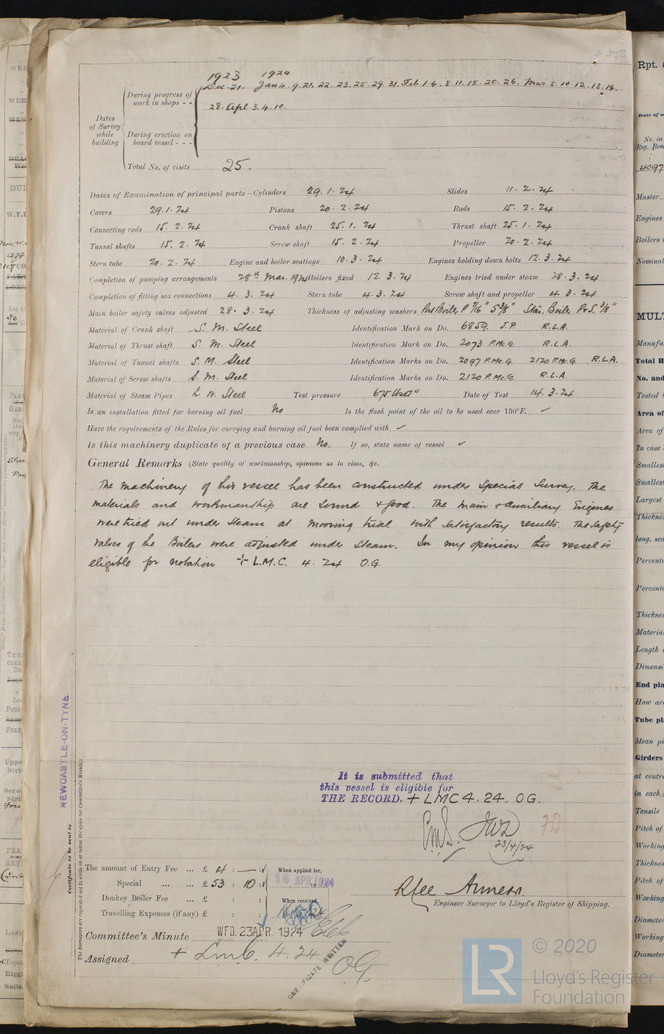 1923 1924
During progress of work in shops - - Dec. 21. Jan 4. 9. 21. 22. 23. 25. 29. 31. Feb. 1. 4. 8. 11. 15. 20. 26. Mar. 5. 10. 12. 13. 14.
28. Apl. 3. 4. 10.
Dates of Survey while building
During erection on board vessel - - -
Total No. of visits 25.
Dates of Examination of principal parts—Cylinders 29.1.24 Slides 11.2.24
Covers 29.1.24 Pistons 20.2.24 Rods 15.2.24
Connecting rods 15.2.24 Crank shaft 25.1.24 Thrust shaft 25.1.24
Tunnel shafts 15.2.24 Screw shaft 15.2.24 Propeller 20.2.24
Stern tube 20.2.24 Engine and boiler seatings 10.3.24 Engines holding down bolts 12.3.24
Completion of pumping arrangements 28th Mar. 1924 Boilers fixed 12.3.24 Engines tried under steam 28.3.24
Completion of fitting sea connections 4.3.24 Stern tube 4.3.24 Screw shaft and propeller 4.3.24
Main boiler safety valves adjusted 28.3.24 Thickness of adjusting washers Port Boiler P 7/16" S 3/8" Star. Boiler P+S. 3/8"
Material of Crank shaft S. M. Steel Identification Mark on Do. 6859. J.P. R.L.A.
Material of Thrust shaft S. M. Steel Identification Mark on Do. 2073 P.McG. R.L.A.
Material of Tunnel shafts S. M. Steel Identification Marks on Do. 2097 P.McG. 2120 P.McG. R.L.A.
Material of Screw shafts S. M. Steel Identification Marks on Do. 2120 P.McG. R.L.A.
Material of Steam Pipes L. W. Steel Test pressure 675 Date of Test 14.3.24
Is an installation fitted for burning oil fuel No Is the flash point of the oil to be used over 150°F. ✓
Have the requirements of the Rules for carrying and burning oil fuel been complied with ✓
Is this machinery duplicate of a previous case No. If so, state name of vessel ✓
General Remarks (State quality of workmanship, opinions as to class, &c.
The machinery of this vessel has been constructed under Special Survey. The
materials and workmanship are sound & good. The main & auxiliary Engines
were tried out under steam at mooring trial with satisfactory results. The safety
valves of the Boilers were adjusted under steam. In my opinion this vessel is
eligible for notation + L.M.C. 4.24 O.G.
NEWCASTLE-ON-TYNE
Certificate to be sent to
The Surveyors are requested not to write on or below the space for Committee's Minute.
It is submitted that
this vessel is eligible for
THE RECORD. + LMC 4.24. O.G.
23/4/24
The amount of Entry Fee ... £ 4 : — : When applied for,
Special ... ... £ 53 : 10 : 16 APR 1924
Donkey Boiler Fee ... £ : : When received,
Travelling Expenses (if any) £ : :
Engineer Surveyor to Lloyd's Register of Shipping.
Committee's Minute WED. 23 APR. 1924
Assigned + LMC. 4.24
O.G.
CERTIFICATE WRITTEN
LR © 2020
Lloyd's Register
Foundation
Rpt.